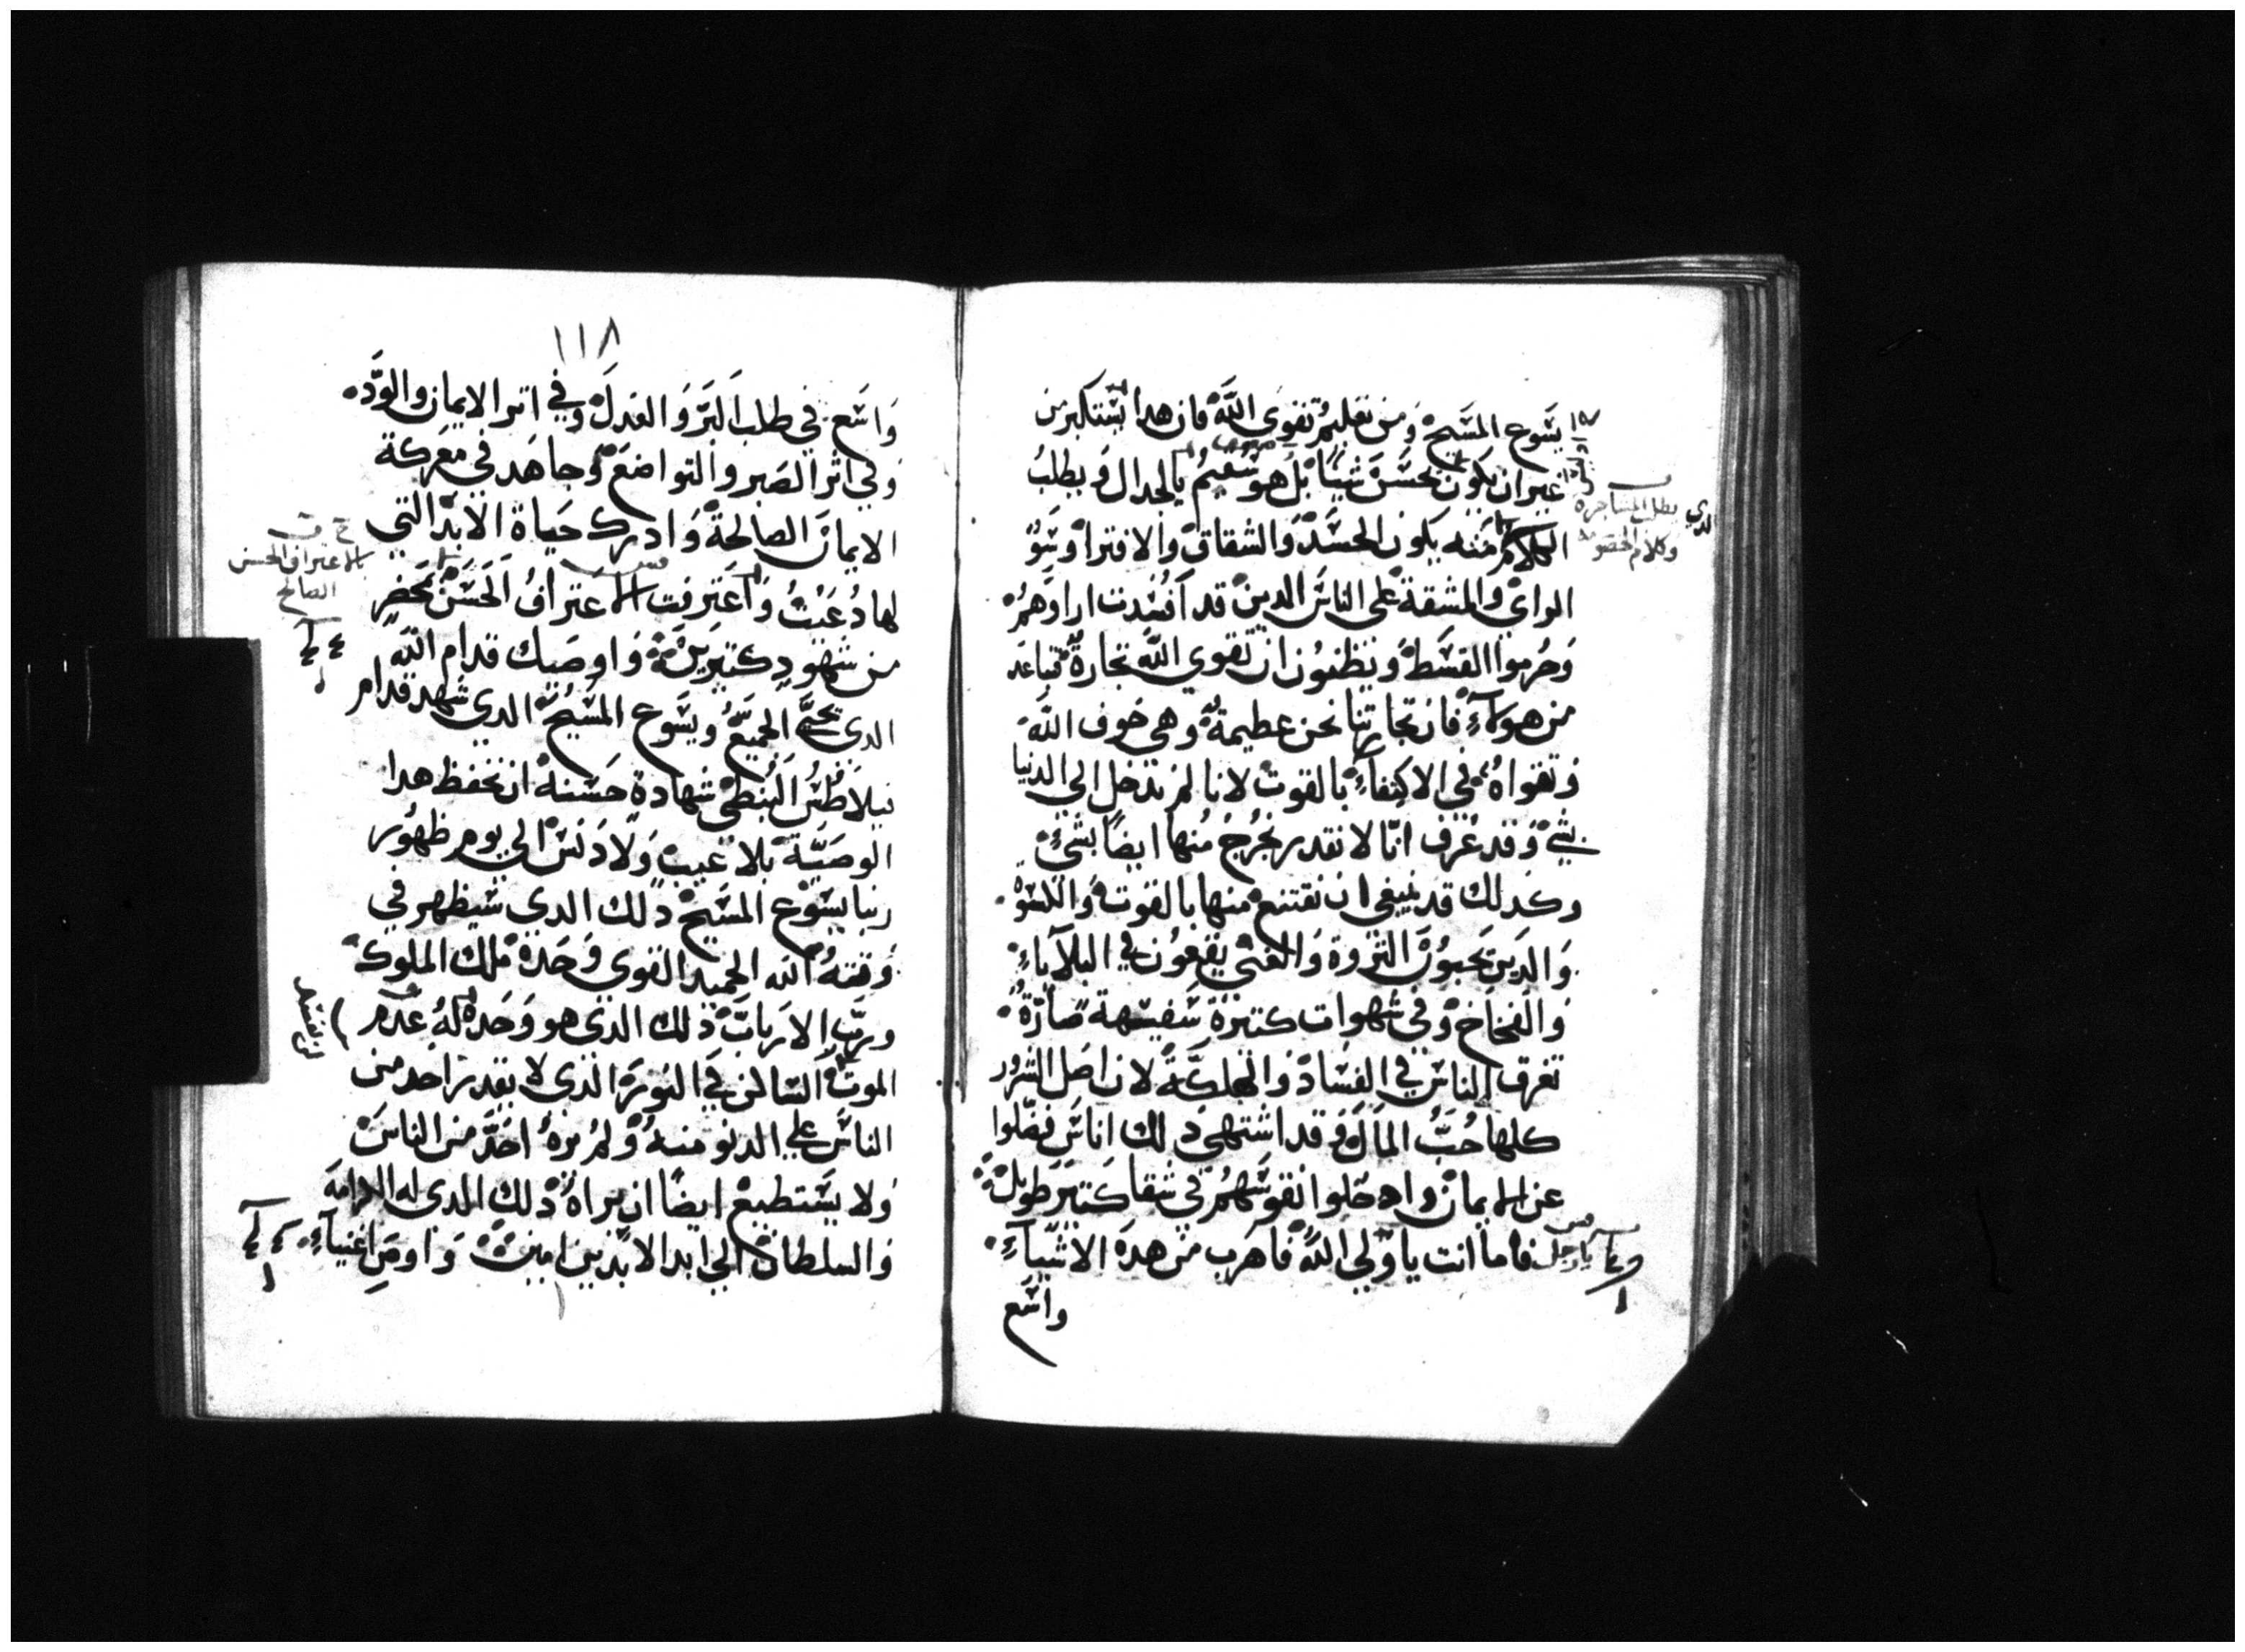 يسوع المسيح ومن تعليم تقوى الله فان هدا يستكبر من
غير ان يكون يحسن شيئا بل هو سقيم بالجدال ويطلب
الكلام منه يكون الحسد والشقاق والافترا وسو
الراي والمشقة على الناس الدين قد افسدت اراوهم
وحرموا القسط ويظنون ان تقوي الله تجارة تباعد
من هولاء فان تجارتنا نحن عظيمة وهي خوف الله
وتقواه في الاكتفاء بالقوت لانا لم ندخل الي الدنيا
بشي وقد عرف انا لا نقدر نخرج منها ايضا بشي
وكدلك قد ينبغي ان نقتنع منها بالقوت والكسوة
والدين يحبون الثروة والغني يقعون في البلايا
والفخاخ وفي شهوات كتيرة سفيهة ضارة
تغرق الناس في الفساد والهلكة لان اصل الشرور
كلها حب المال وقد اشتهى دلك اناس فضلوا
عن الايمان وادخلوا نفوسهم في شقا كتير طويل
فاما انت يا ولي الله فاهرب من هده الاشياء
واسع
يطلب المشاجرة
وكلام الخصومه
يا رجل
١١٨
واسع في طلب البر والعدل وفي اتر الايمان والوده
وفي اتر الصبر والتواضع وجاهد في معركة
الايمان الصالحة وادرك حياة الابد التي
لها دعيت واعترفت الاعتراف الحسن بمحضر
من شهود كتيرين واوصيك قدام الله
الدي يحيي الجميع ويسوع المسيح الدي شهد قدام
بيلاطس البنطي شهادة حسنة ان تحفظ هدا
الوصية بلا عيب ولا دنس الي يوم ظهور
ربنا يسوع المسيح دلك الدي سيظهر في
وقته الله الحميد القوي وحده ملك الملوك
ورب الارباب ذلك الدي هو وحده له عدم
الموت الساكن في النور الذي لا يقدر احد من
الناس علي الدنو منه ولم يره احد من الناس
ولا يستطيع ايضا ان يراه ذلك الدي له الكرامه
والسلطان الي ابد الابدين امين واوص اغنياء
بالاعتراف الحسن
الصالح